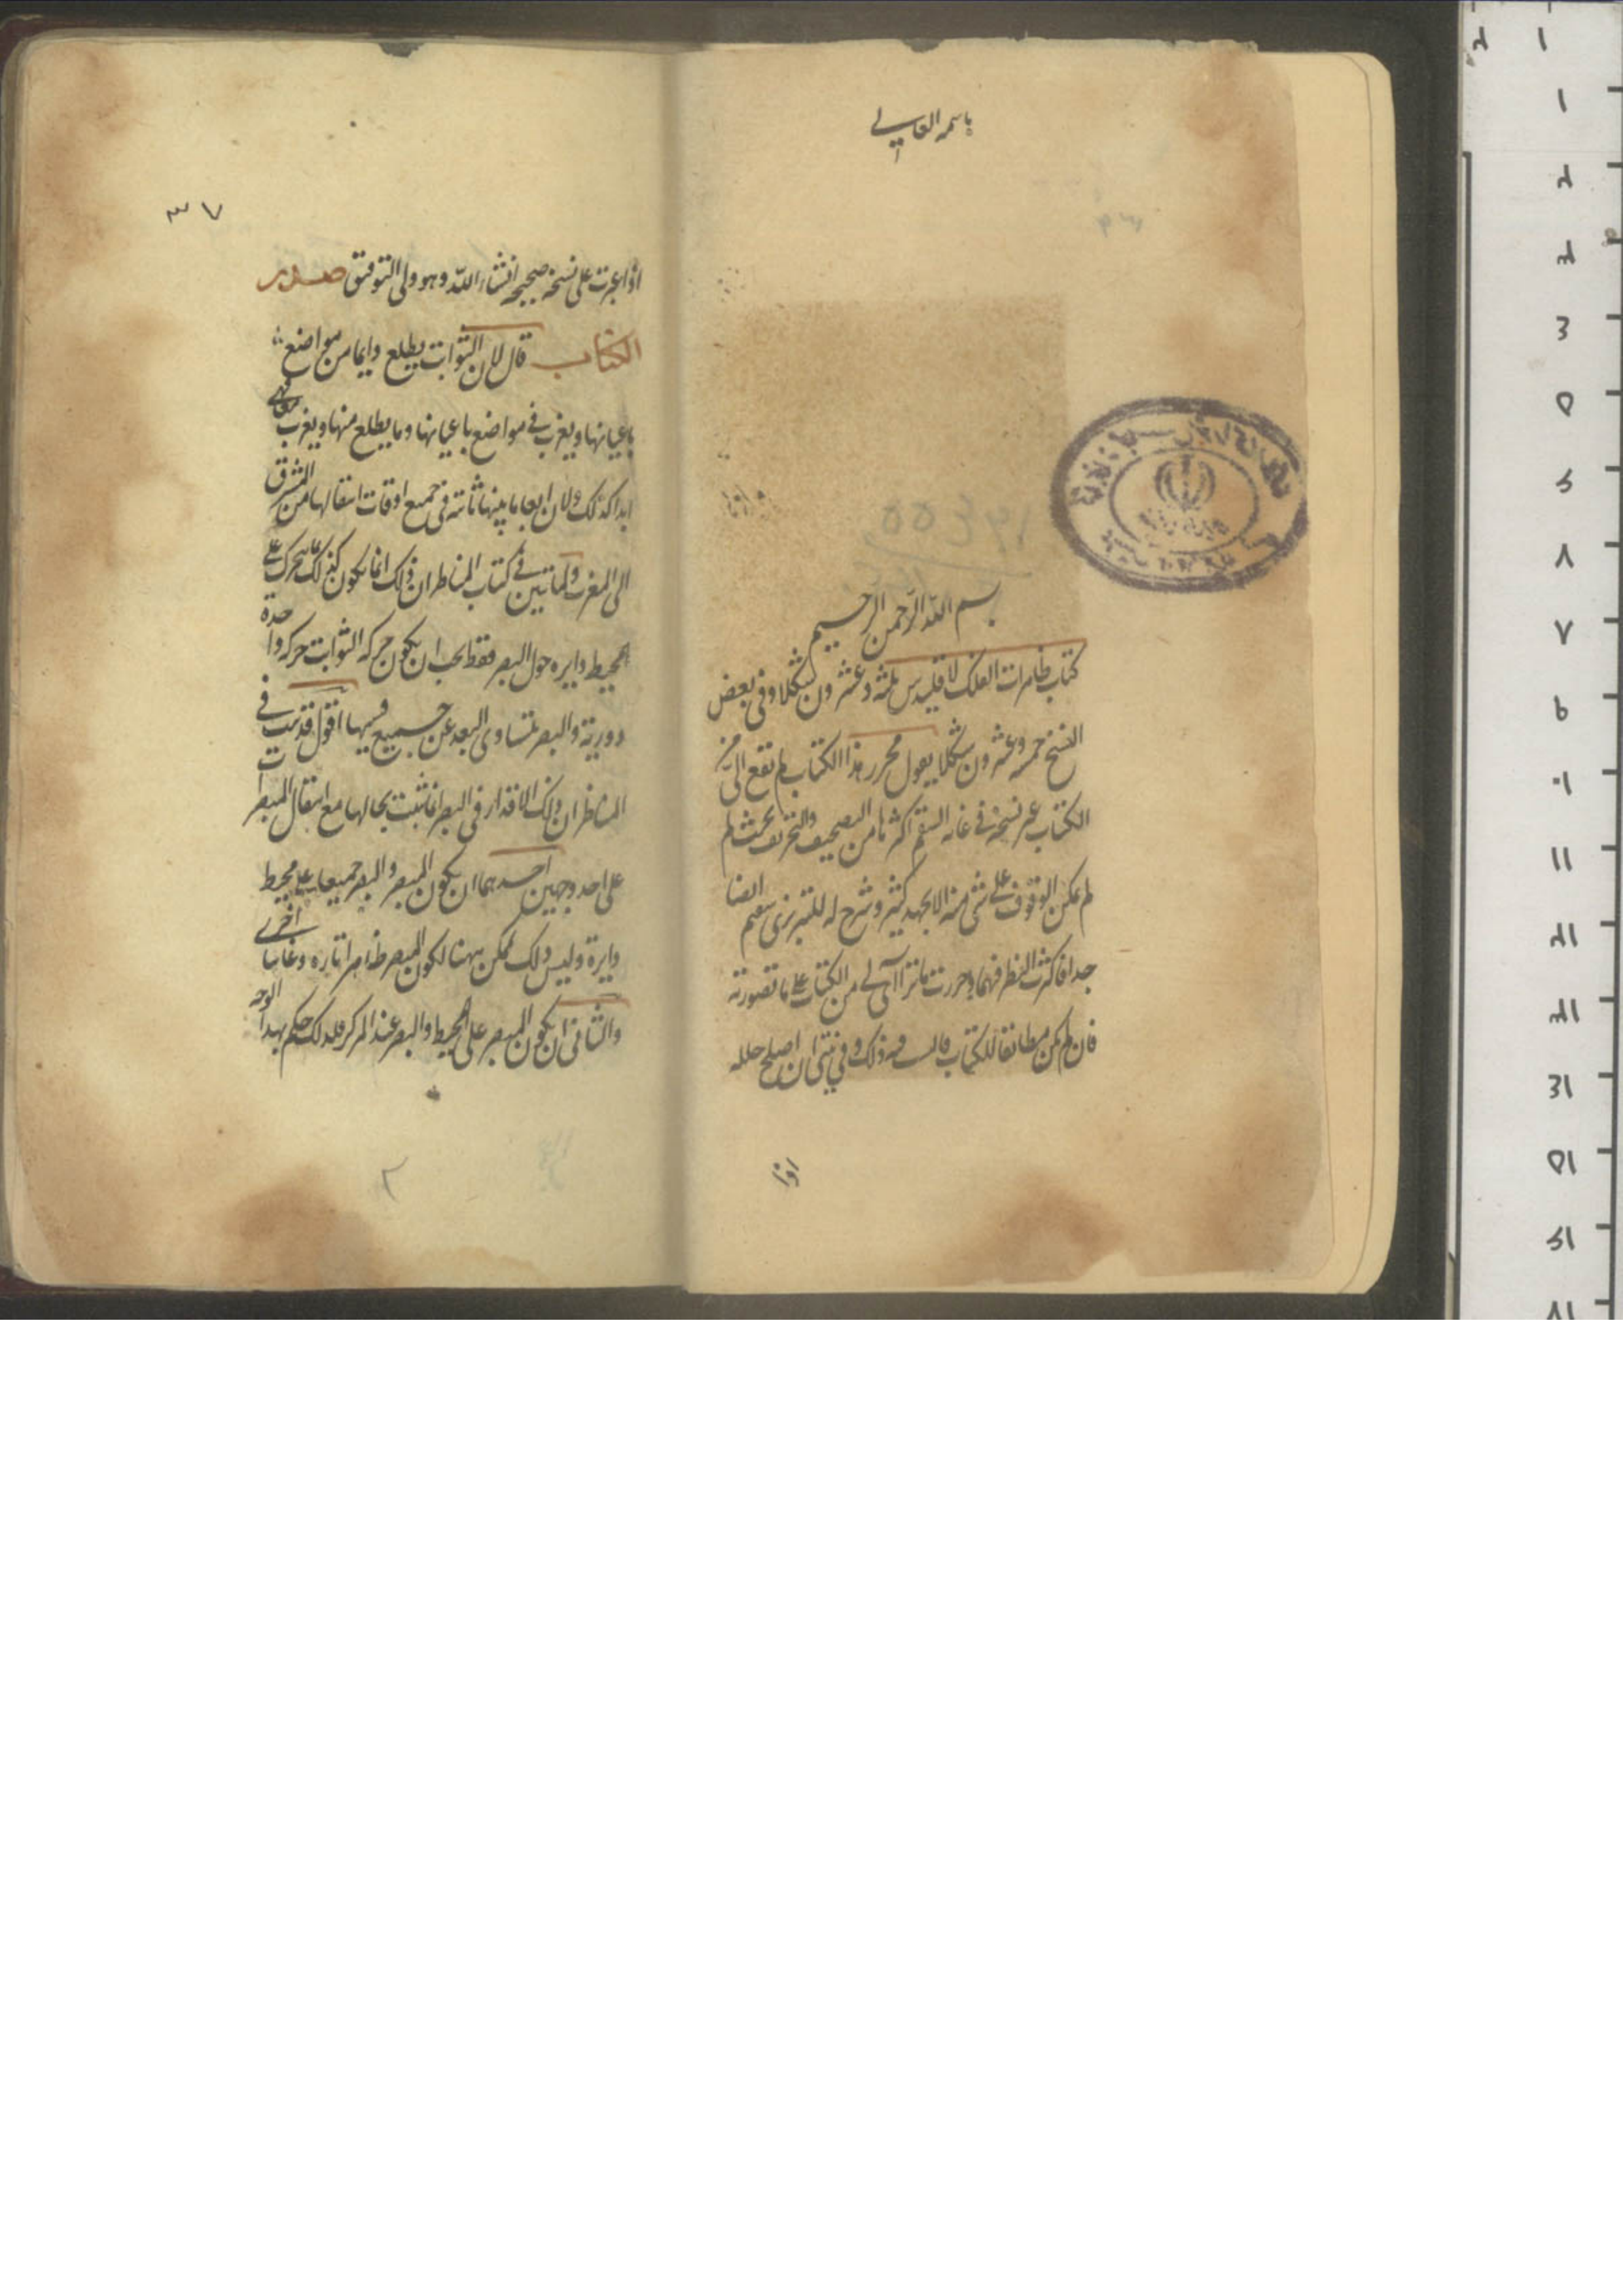 باسمه العالی
بسم الله الرحمن الرحیم
کتاب ظاهرات الفلک لاقلیدس ثلثة وعشرون شکلا وفی بعض
النسخ خمسة وعشرون شکلا یقول محرر هذا الکتاب لم تقع الیّ من
الکتاب غیر نسخة فی غایة السقم اکثرها من التصحیف والتحریف بحیث لم
لم یمکن الوقوف علی شئ منه الا بجهد کثیر وشرح له للتبریزی سقیم ایضا
جدا فاکثرت النظر فیهما وحررت ما تراآی لی من الکتاب علی ما تصورته
فان لم یکن مطابقا للکتاب ذلک وفی نیتی ان اصلح خلله
اذا
٣٧
اذا عبرت علی نسخة صحیحة انشاء الله وهو ولی التوفیق صدر
الکتاب قال لان الثوابت یطلع دایما من مواضع
باعیانها ویغرب فی مواضع باعیانها وما یطلع منها ویغرب معا فهی
ابدا کذلک ولان ابعاد ما بینها ثابتة فی جمیع اوقات انتقالها من المشرق
الی المغرب وکما تبین فی کتاب المناظر ان ذلک انما یکون کذلک بما یتحرک علی
محیط دایره حول البصر فقط یجب ان یکون حرکة الثوابت حرکة واحدة
دوریة والبصر متساوی البعد عن جمیع قسیها اقول قد تبین فی
المناظر ان تلک الاقدار فی البصر انما تثبت بحالها مع انتقال المبصرات
علی احد وجهین احدهما ان یکون المبصر والبصر جمیعا علی محیط
دایرة ولیس ذلک بممکن ههنا لکون المبصر ظاهرا تارة وغایبا اخری
والثانی ان یکون المبصر علی المحیط والبصر عند المرکز فلذلک حکم بهذا الوجه
٢